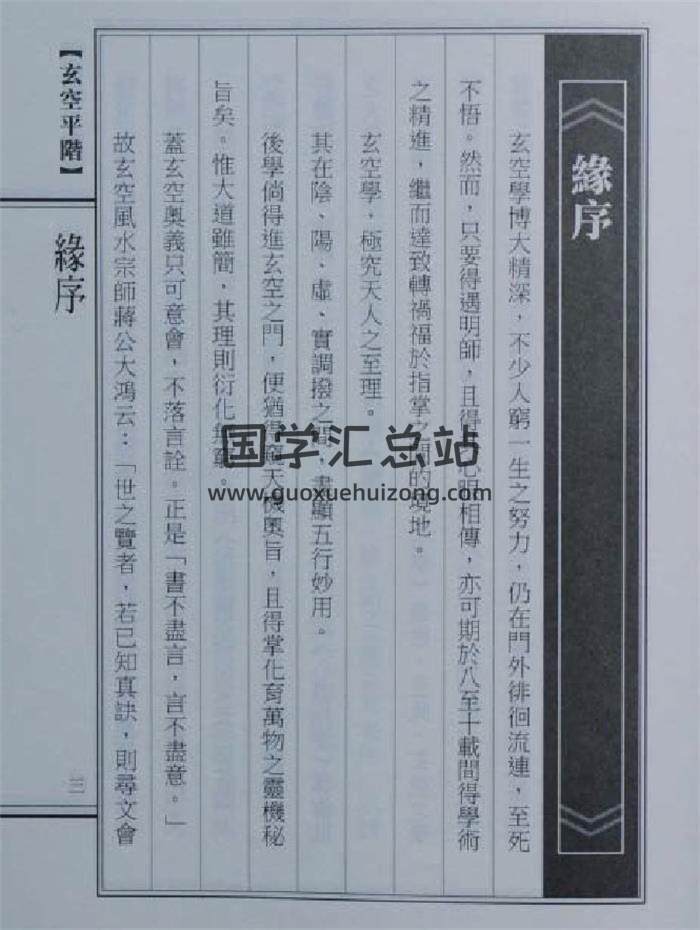 緣序
玄空學博大精深，不少人窮一生之努力，仍在門外徘徊流連，至死
不悟。然而，只要得遇明師，且得心眼相傳，亦可期於八至十載間得學術
之精進，繼而達致轉禍福於指掌之間的境地。
玄空學，極究天人之至理。
其在陰、陽、虛、實調撥之間，盡顯五行妙用。
後學倘得進玄空之門，便猶得窺天機奧旨，且得掌化育萬物之靈機秘
旨矣。惟大道雖簡，其理則衍化無窮。
蓋玄空奧義只可意會，不落言詮。正是「書不盡言，言不盡意。」
故玄空風水宗師蔣公大鴻云：「世之覽者，若已知真訣，則尋文會
【玄空平階】
緣序
三
国学汇总站
www.guoxuehuizong.com